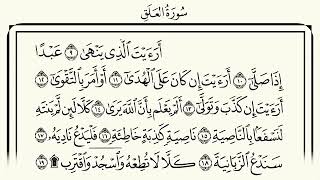 سُورَةُ العَلَقِ
أَرَءَيْتَ ٱلَّذِى يَنْهَىٰ ۝٩ عَبْدًا
إِذَا صَلَّىٰٓ ۝١٠ أَرَءَيْتَ إِن كَانَ عَلَى ٱلْهُدَىٰٓ ۝١١ أَوْ أَمَرَ بِٱلتَّقْوَىٰٓ ۝١٢
أَرَءَيْتَ إِن كَذَّبَ وَتَوَلَّىٰٓ ۝١٣ أَلَمْ يَعْلَم بِأَنَّ ٱللَّهَ يَرَىٰ ۝١٤ كَلَّا لَئِن لَّمْ يَنتَهِ
لَنَسْفَعًۢا بِٱلنَّاصِيَةِ ۝١٥ نَاصِيَةٍ كَٰذِبَةٍ خَاطِئَةٍ ۝١٦ فَلْيَدْعُ نَادِيَهُۥ ۝١٧
سَنَدْعُ ٱلزَّبَانِيَةَ ۝١٨ كَلَّا لَا تُطِعْهُ وَٱسْجُدْ وَٱقْتَرِب ۩ ۝١٩